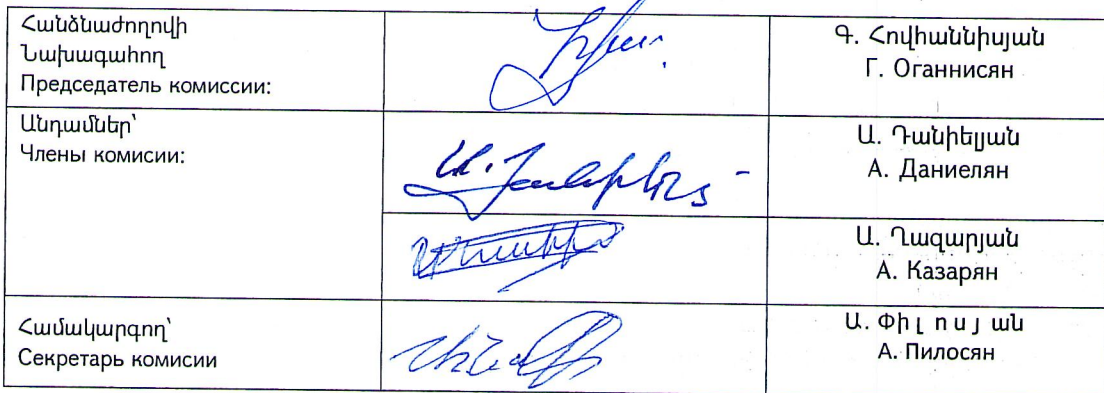 Հանձնաժողովի
Նախագահող
Председатель комиссии:
Գ. Հովհաննիսյան
Г. Оганнисян
Անդամներ՝
Члены комисии:
Ա. Դանիելյան
А. Даниелян
Ա. Ղազարյան
А. Казарян
Համակարգող՝
Секретарь комисии
Ա. Փի լ ո ս յ ան
А. Пилосян